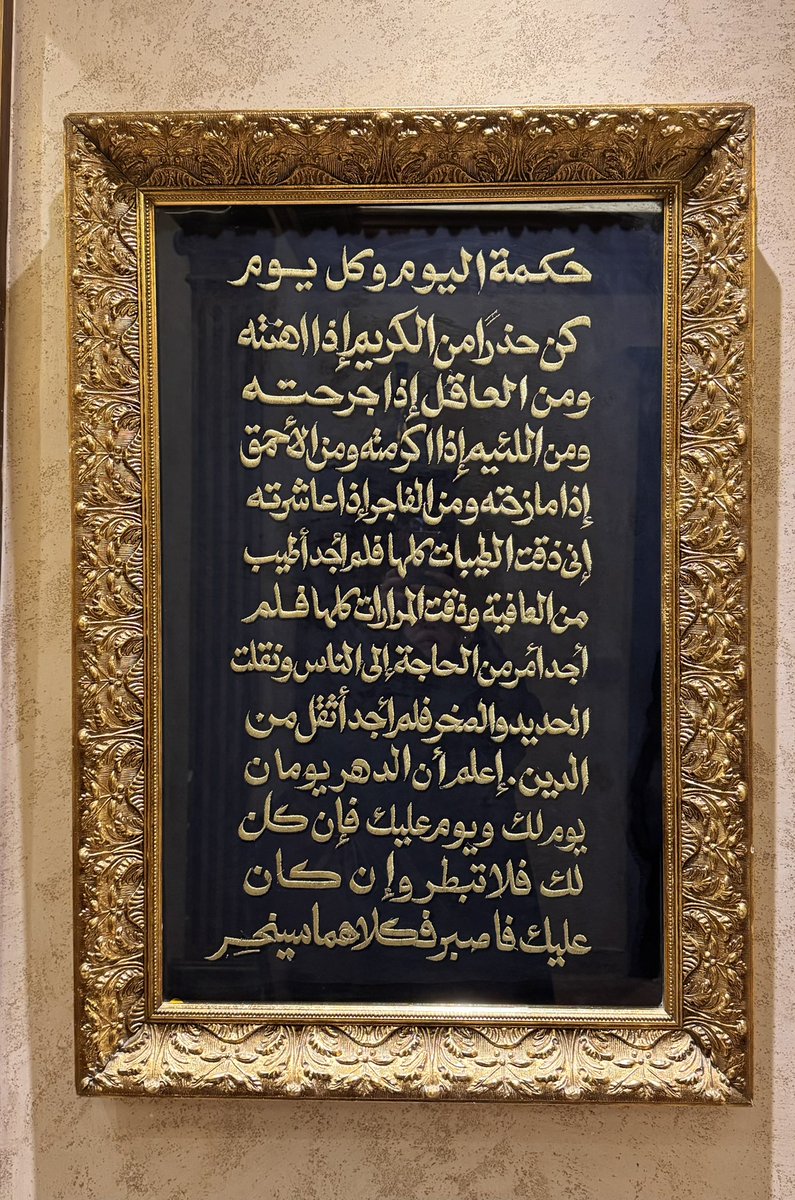 حكمة اليوم وكل يوم
كن حذرًا من الكريم إذا اهنته
ومن العاقل إذا جرحته
ومن اللئيم إذا اكرمته ومن الأحمق
إذا مازحته ومن الفاجر إذا عاشرته
إنى ذقت الطيبات كلها فلم أجد أطيب
من العافية وذقت المرارات كلها فلم
أجد أمر من الحاجة إلى الناس ونقلت
الحديد والصخر فلم أجد أثقل من
الدين. إعلم أن الدهر يومان
يوم لك ويوم عليك فإن كان
لك فلا تبطر وإن كان
عليك فاصبر فكلاهما سينحسر